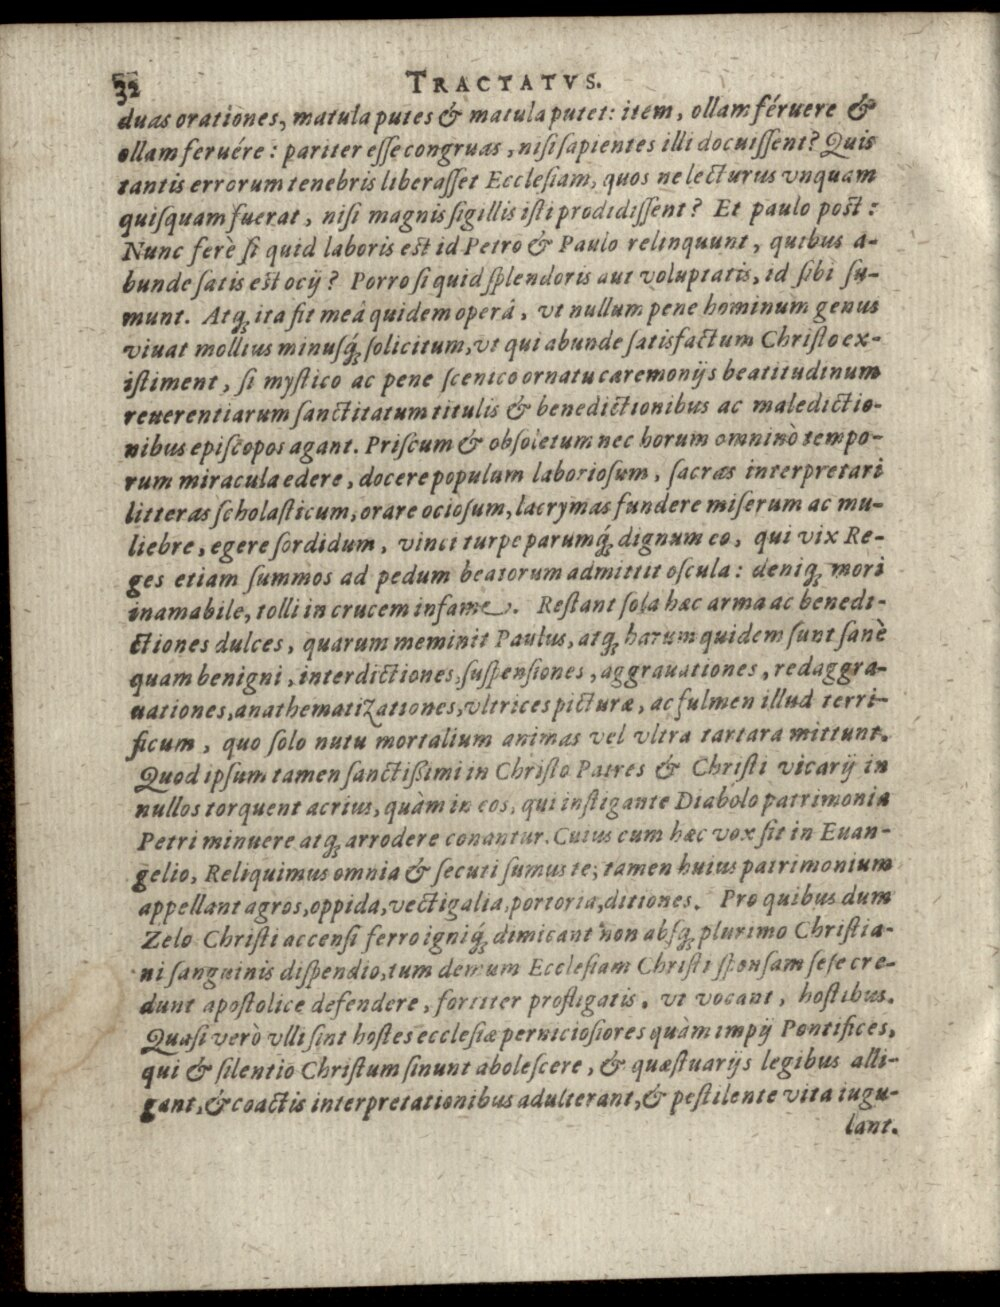 32
TRACTATVS.
duas orationes, matula putes & matula putet: item, ollam féruere &
ollam feruére: pariter eſſe congruas, niſi ſapientes illi docuiſſent? Quis
tantis errorum tenebris liberaſſet Eccleſiam, quos ne lecturus vnquam
quiſquam fuerat, niſi magnis ſigillis iſti prodidiſſent? Et paulo poſt:
Nunc ferè ſi quid laboris eſt id Petro & Paulo relinquunt, quibus a-
bunde ſatis eſt ocij? Porro ſi quid ſplendoris aut voluptatis, id ſibi ſu-
munt. Atq́; ita fit meâ quidem operâ, vt nullum pene hominum genus
viuat mollius minuſq́; ſolicitum, vt qui abunde ſatisfactum Chriſto ex-
iſtiment, ſi myſtico ac pene ſcenico ornatu cæremonijs beatitudinum
reuerentiarum ſanctitatum titulis & benedictionibus ac maledictio-
nibus epiſcopos agant. Priſcum & obſoletum nec horum omninò tempo-
rum miracula edere, docere populum laborioſum, ſacras interpretari
litteras ſcholaſticum, orare ocioſum, lacrymas fundere miſerum ac mu-
liebre, egere ſordidum, vinci turpe parumq́; dignum eo, qui vix Re-
ges etiam ſummos ad pedum beatorum admittit oſcula: deniq; mori
inamabile, tolli in crucem infame. Reſtant ſola hæc arma ac benedi-
ctiones dulces, quarum meminit Paulus, atq; harum quidem ſunt ſanè
quam benigni, interdictiones, ſuſpenſiones, aggrauationes, redaggra-
uationes, anathematizationes, vltrices picturæ, ac fulmen illud terri-
ficum, quo ſolo nutu mortalium animas vel vltra tartara mittunt.
Quod ipſum tamen ſanctiſſimi in Chriſto Patres & Chriſti vicarij in
nullos torquent acrius, quàm in eos, qui inſtigante Diabolo patrimonia
Petri minuere atq; arrodere conantur. Cuius cum hæc vox ſit in Euan-
gelio, Reliquimus omnia & ſecuti ſumus te; tamen huius patrimonium
appellant agros, oppida, vectigalia, portoria, ditiones. Pro quibus dum
Zelo Chriſti accenſi ferro igniq́; dimicant non abſq; plurimo Chriſtia-
ni ſanguinis diſpendio, tum demum Eccleſiam Chriſti ſponſam ſeſe cre-
dunt apoſtolice defendere, fortiter profligatis, vt vocant, hoſtibus.
Quaſi verò vlli ſint hoſtes eccleſiæ pernicioſiores quàm impij Pontifices,
qui & ſilentio Chriſtum ſinunt aboleſcere, & quæſtuarijs legibus alli-
gant, & coactis interpretationibus adulterant, & peſtilente vita iugu-
lant.